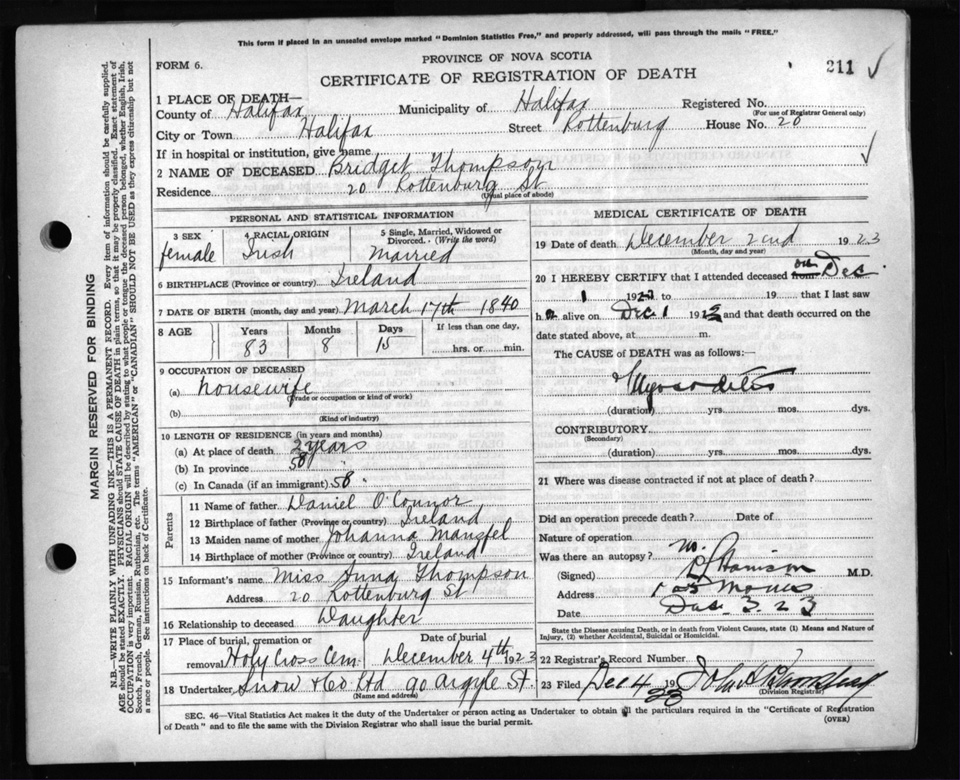 This form if placed in an unsealed envelope marked "Dominion Statistics Free," and properly addressed, will pass through the mails "FREE."
FORM 6.
PROVINCE OF NOVA SCOTIA
CERTIFICATE OF REGISTRATION OF DEATH
211
1 PLACE OF DEATH—
County of Halifax Municipality of Halifax Registered No.
(For use of Registrar General only)
City or Town Halifax Street Rottenburg House No. 20
If in hospital or institution, give name
2 NAME OF DECEASED Bridget Thompson
Residence 20 Rottenburg St
(Usual place of abode)
PERSONAL AND STATISTICAL INFORMATION
3 SEX female
4 RACIAL ORIGIN Irish
5 Single, Married, Widowed or Divorced. (Write the word) Married
6 BIRTHPLACE (Province or country) Ireland
7 DATE OF BIRTH (month, day and year) March 17th 1840
8 AGE Years 83 Months 8 Days 15 If less than one day, hrs. or min.
9 OCCUPATION OF DECEASED
(a) housewife
(Trade or occupation or kind of work)
(b)
(Kind of industry)
10 LENGTH OF RESIDENCE (in years and months)
(a) At place of death 2 years
(b) In province 58 "
(c) In Canada (if an immigrant) 58 "
Parents
11 Name of father Daniel O'Connor
12 Birthplace of father (Province or country) Ireland
13 Maiden name of mother Johanna
14 Birthplace of mother (Province or country) Ireland
15 Informant's name Miss Anna Thompson
Address 20 Rottenburg St
16 Relationship to deceased Daughter
17 Place of burial, cremation or removal Holy Cross Cem. Date of burial December 4th 1923
18 Undertaker Snow & Co Ltd 90 Argyle St.
(Name and address)
MEDICAL CERTIFICATE OF DEATH
19 Date of death December 2nd 1923
(Month, day and year)
20 I HEREBY CERTIFY that I attended deceased from on Dec.
1 192 to 19 that I last saw
h alive on Dec 1 192 and that death occurred on the
date stated above, at m.
The CAUSE of DEATH was as follows:—
Myocarditis
(duration) yrs. mos. dys.
CONTRIBUTORY
(Secondary)
(duration) yrs. mos. dys.
21 Where was disease contracted if not at place of death?
Did an operation precede death? Date of
Nature of operation
Was there an autopsy?
(Signed) M.D.
Address Morris
Date Dec. 3. 23
State the Disease causing Death, or in death from Violent Causes, state (1) Means and Nature of Injury, (2) whether Accidental, Suicidal or Homicidal.
22 Registrar's Record Number
23 Filed Dec 4 19 23
(Division Registrar)
SEC. 46—Vital Statistics Act makes it the duty of the Undertaker or person acting as Undertaker to obtain all the particulars required in the "Certificate of Registration
of Death" and to file the same with the Division Registrar who shall issue the burial permit.
(OVER)
MARGIN RESERVED FOR BINDING
N.B.—WRITE PLAINLY WITH UNFADING INK—THIS IS A PERMANENT RECORD. Every item of information should be carefully supplied.
AGE should be stated EXACTLY. PHYSICIANS should STATE CAUSE OF DEATH in plain terms, so that it may be properly classified. Exact statement of
OCCUPATION is very important. RACIAL ORIGIN will be described by stating to what people or tongue the deceased person belonged, whether English, Irish,
Scotch, French, German, Russian, Ruthenian, etc. The terms "AMERICAN" or "CANADIAN" SHOULD NOT BE USED as they express citizenship but not
a race or people. See instructions on back of Certificate.